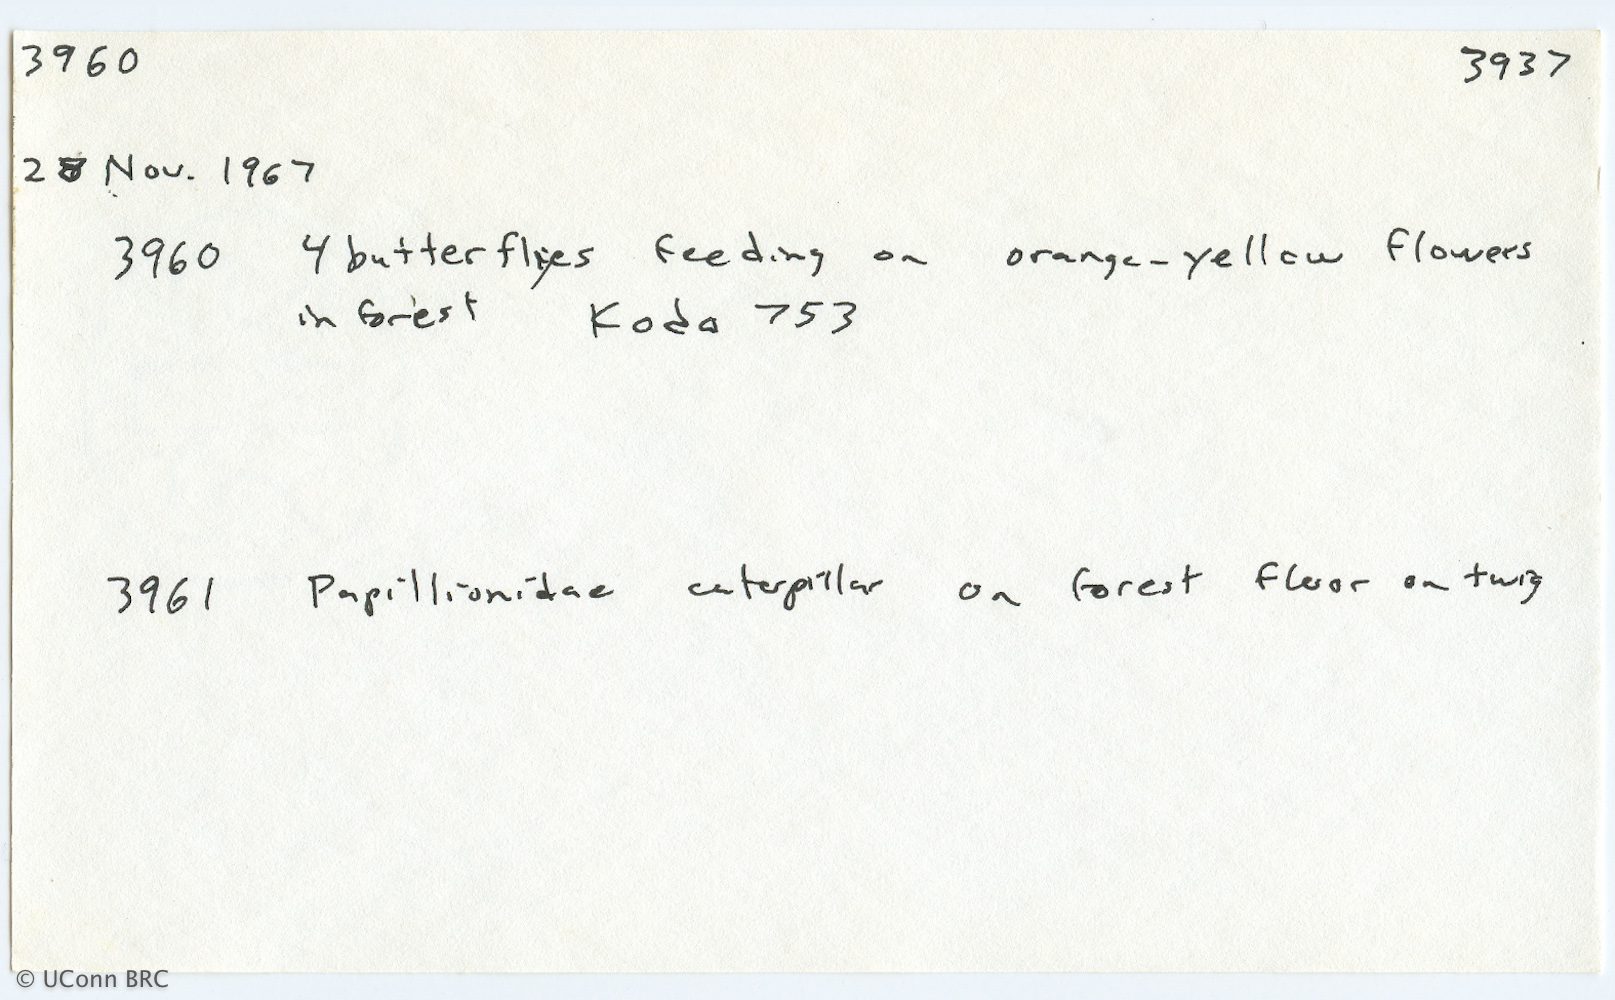 3960 3937
28 Nov. 1967
3960 4 butterflies feeding on orange-yellow flowers
in forest Koda 753
3961 Papillionidae caterpillar on forest floor on twig
© UConn BRC